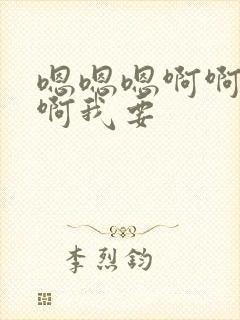 嗯嗯嗯啊啊
啊我要
李烈钧